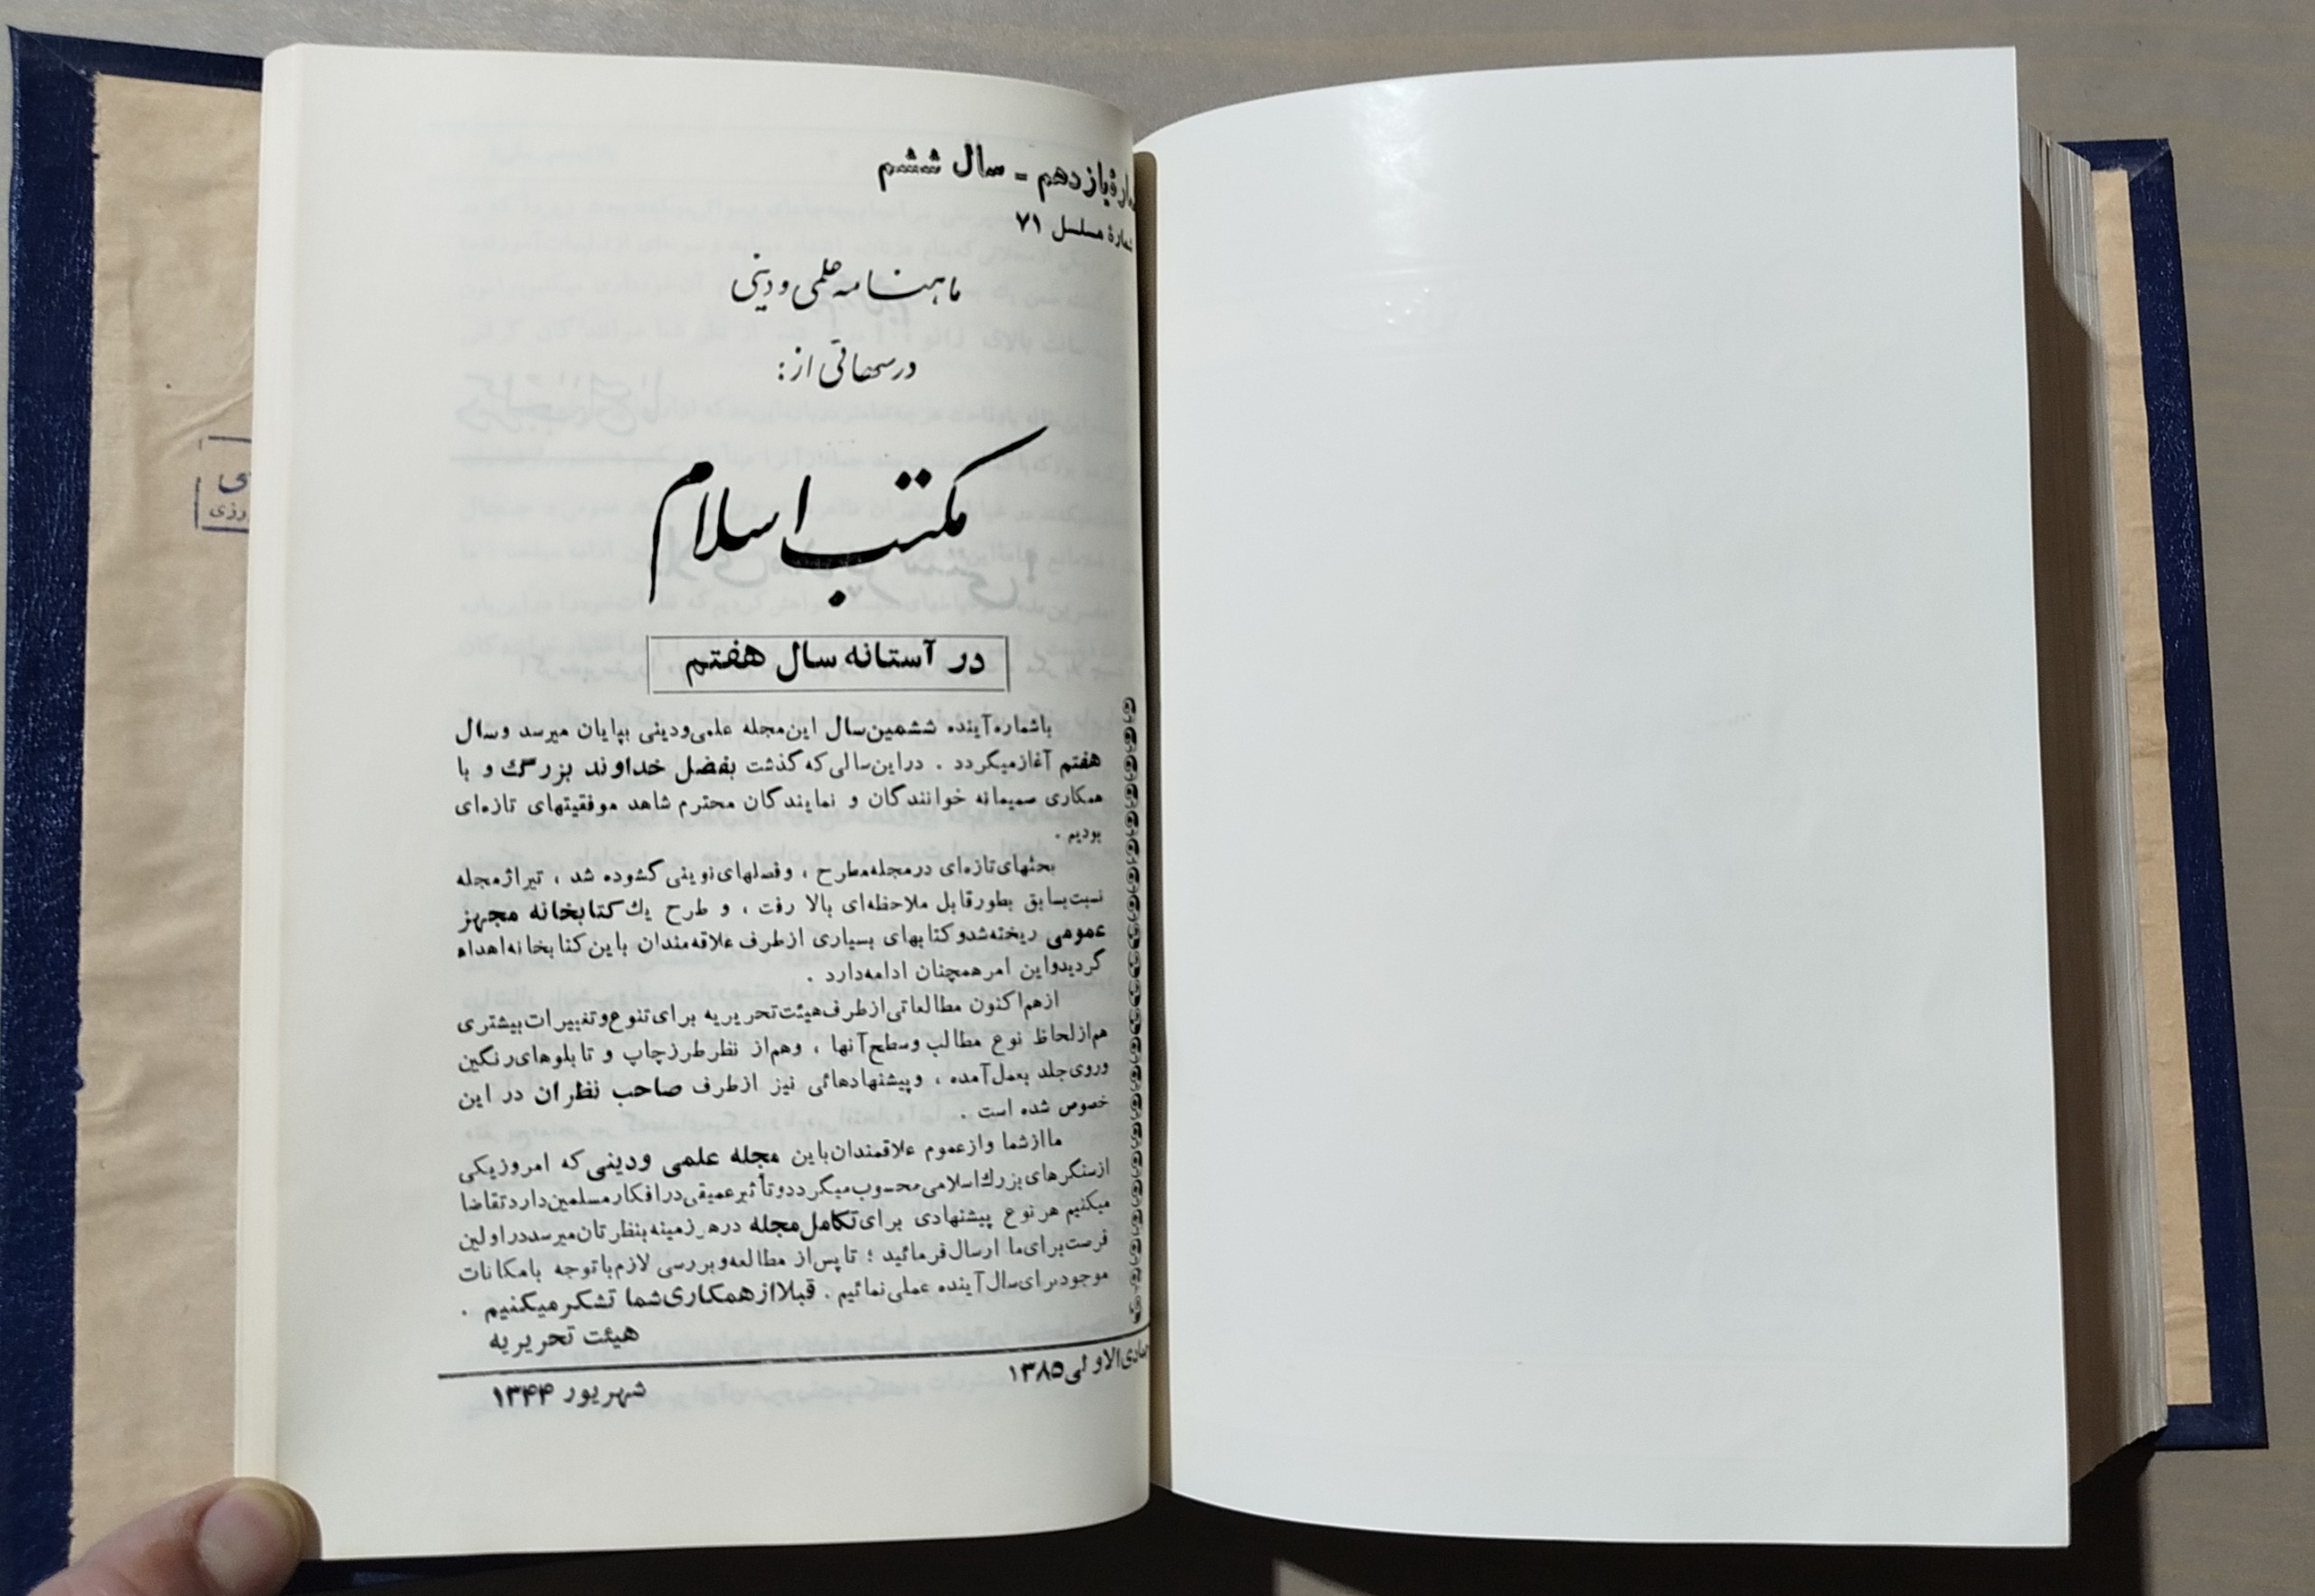 شمارهٔ یازدهم - سال ششم
شمارهٔ مسلسل ۷۱
ماهنامه علمی و دینی
درسهائی از:
مکتب اسلام
در آستانه سال هفتم
باشماره آینده ششمین‌سال این‌مجله علمی‌ودینی بپایان میرسد وسال
هفتم آغازمیگردد . دراین‌سالی که گذشت بفضل خداوند بزرگ و با
همکاری صمیمانه خوانندگان و نمایندگان محترم شاهد موفقیتهای تازه‌ای
بودیم .
بحثهای‌تازه‌ای درمجله‌مطرح ، وفصلهای‌نوینی گشوده شد ، تیراژمجله
نسبت‌بسابق بطورقابل ملاحظه‌ای بالا رفت ، و طرح یك کتابخانه مجهز
عمومی ریخته‌شدوکتابهای بسیاری ازطرف علاقه‌مندان باین‌کتابخانه‌اهداء
گردیدواین امرهمچنان ادامه‌دارد .
ازهم‌اکنون مطالعاتی‌ازطرف‌هیئت‌تحریریه برای‌تنوع‌وتغییرات‌بیشتری
هم‌ازلحاظ نوع مطالب وسطح‌آنها ، وهم‌از نظرطرزچاپ و تابلوهای‌رنگین
وروی‌جلد بعمل‌آمده ، وپیشنهادهائی نیز ازطرف صاحب نظران در این
خصوص شده است .
ماازشما وازعموم علاقمندان‌باین مجله علمی ودینی که امروزیکی
ازسنگرهای‌بزرك‌اسلامی‌محسوب‌میگرددوتأثیرعمیقی‌درافکارمسلمین‌داردتقاضا
میکنیم هرنوع پیشنهادی برای‌تکامل‌مجله درهرزمینه‌بنظرتان‌میرسددراولین
فرصت‌برای‌ما ارسال‌فرمائید ؛ تاپس‌از مطالعه‌وبررسی لازم‌باتوجه بامکانات
موجودبرای‌سال‌آینده عملی‌نمائیم . قبلاازهمکاری‌شما تشکرمیکنیم .
هیئت تحریریه
جمادی‌الاولی۱۳۸۵
شهریور ۱۳۴۴